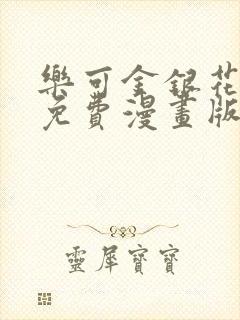 樂可金銀花
免費漫畫版
靈犀寶寶